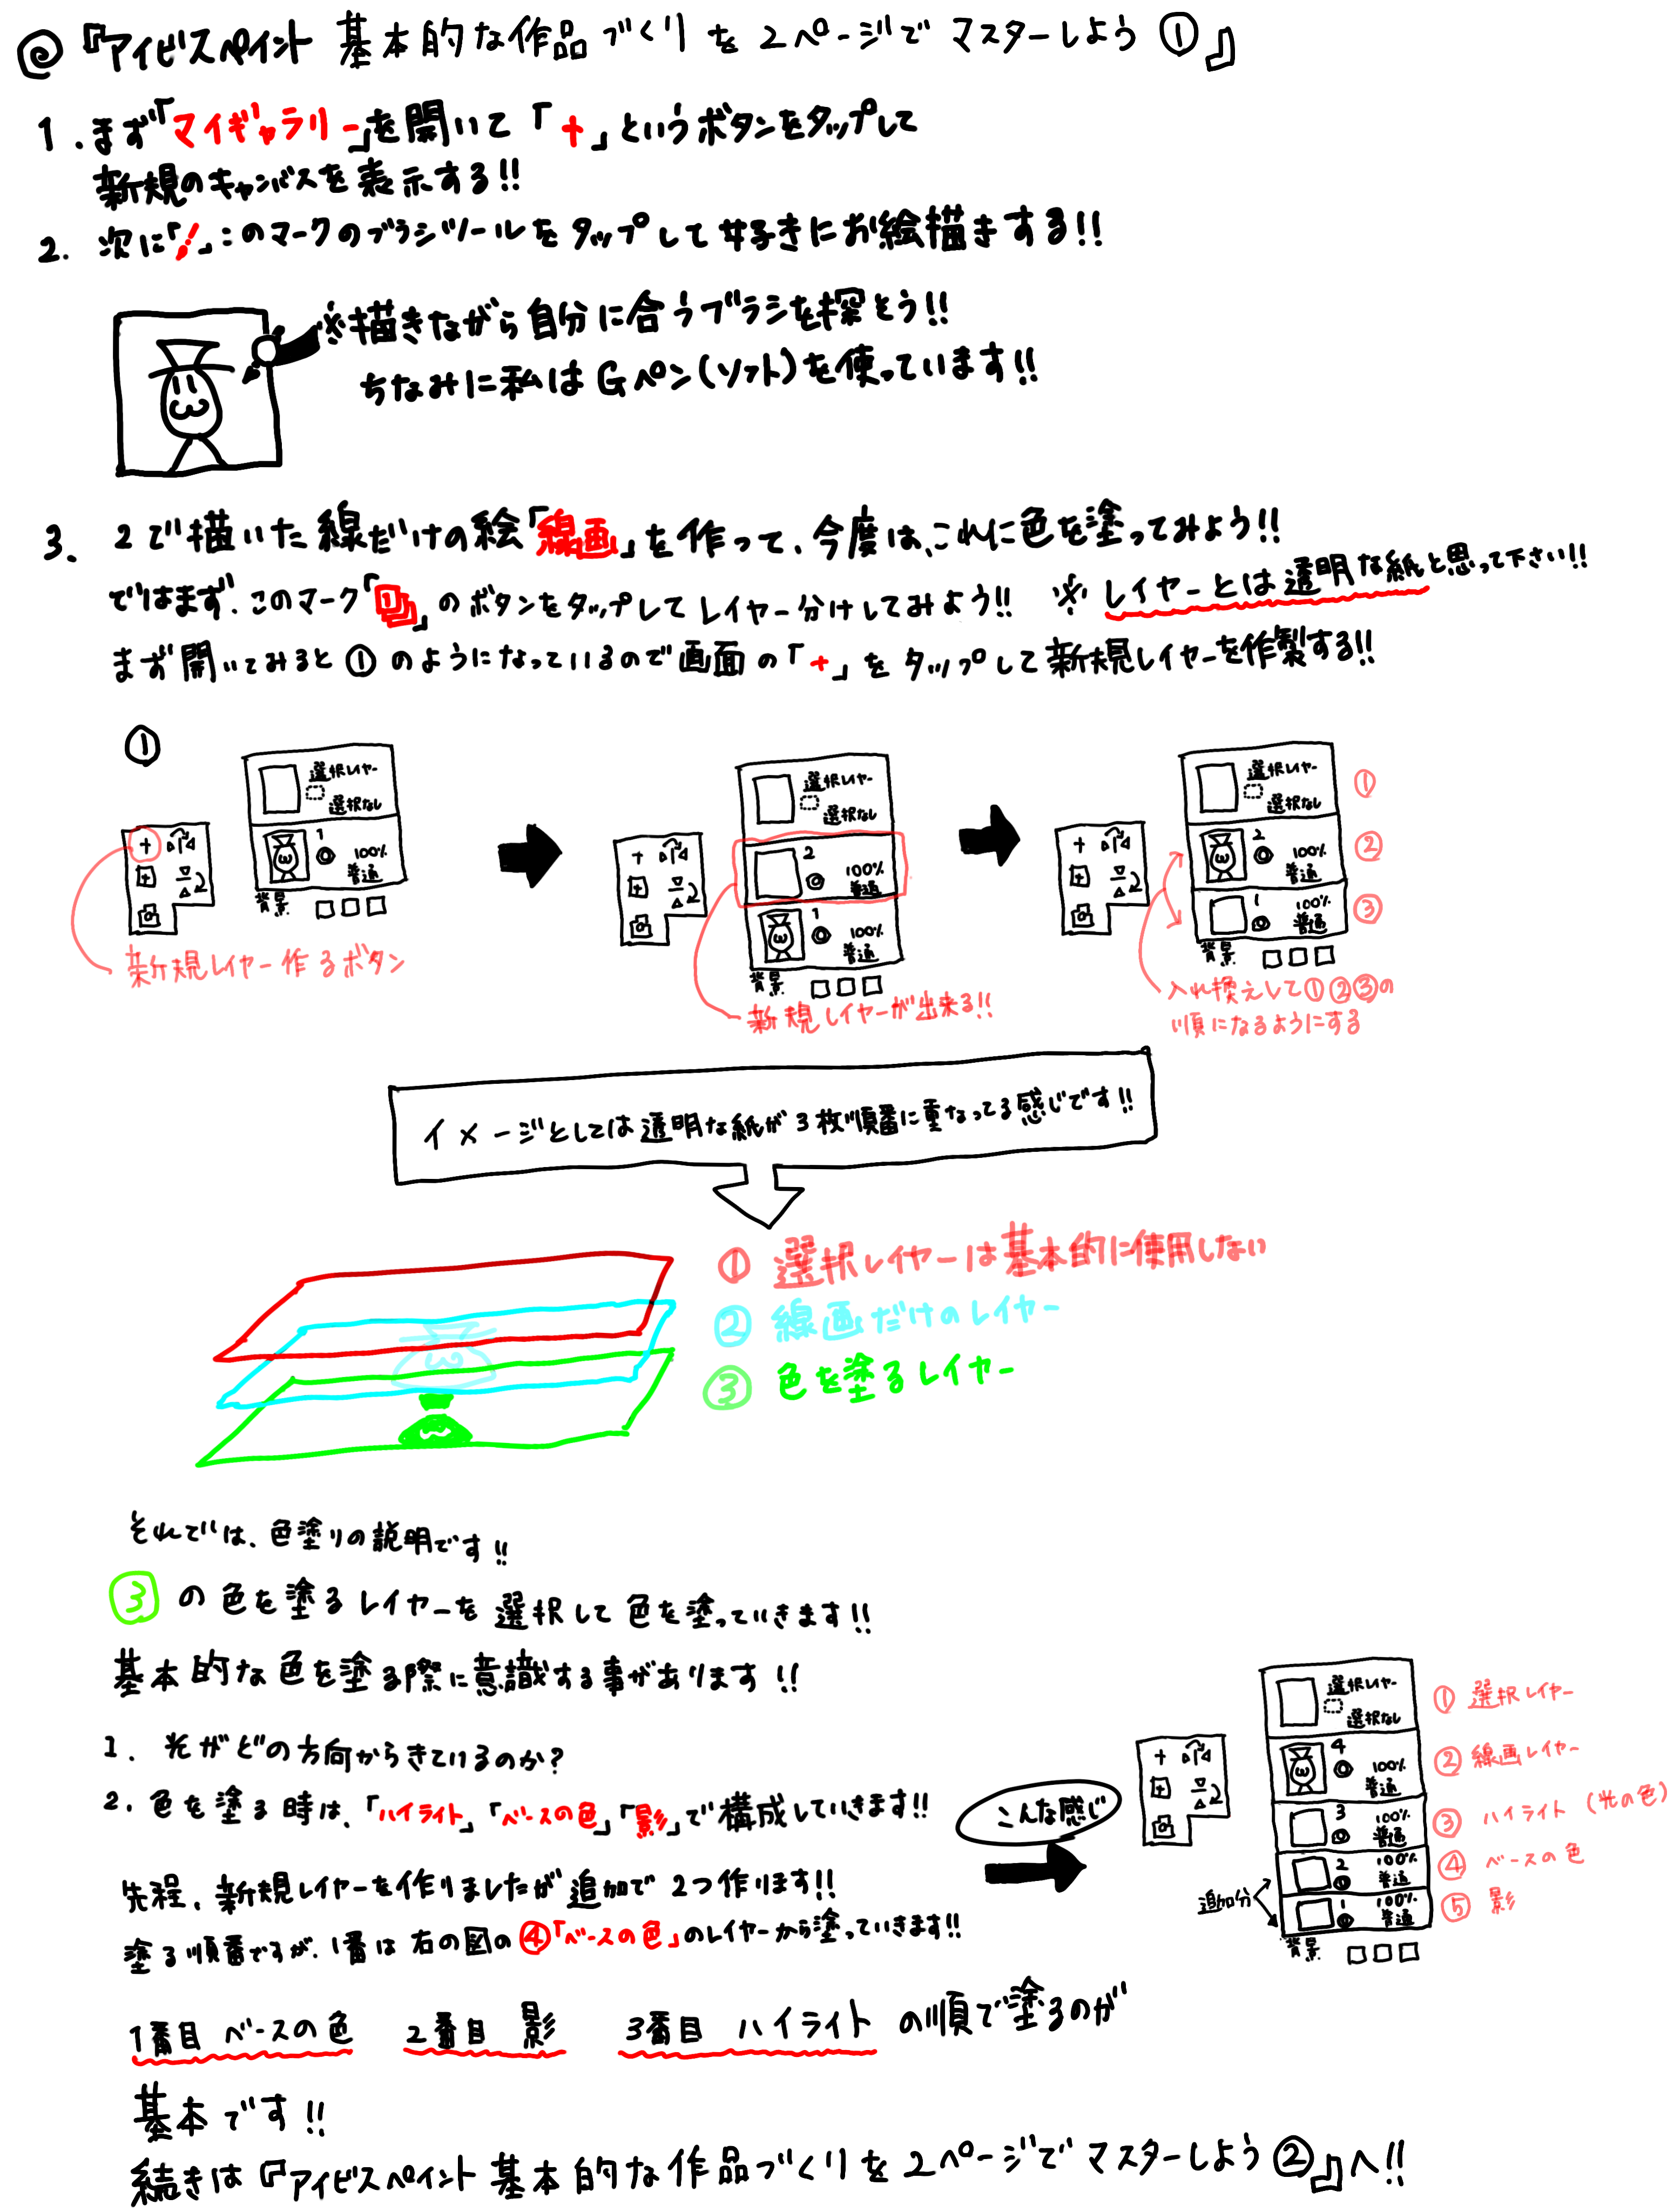 ◎『アイビスペイント 基本的な作品づくりを2ページでマスターしよう①』
1.まず「マイギャラリー」を開いて「+」というボタンをタップして
新規のキャンバスを表示する!!
2. 次に「」このマークのブラシツールをタップして好きにお絵描きする!!
※描きながら自分に合うブラシを探そう!!
ちなみに私はGペン(ソフト)を使っています!!
3. 2で描いた線だけの絵「線画」を作って、今度は、これに色を塗ってみよう!!
ではまず、このマーク「1」のボタンをタップしてレイヤー分けしてみよう!! ※レイヤーとは透明な紙と思って下さい!!
まず開いてみると①のようになっているので画面の「+」をタップして新規レイヤーを作製する!!
①
選択レイヤー
選択なし
1
100%
普通
背景
+
2
新規レイヤー作るボタン
選択レイヤー
選択なし
2
100%
普通
1
100%
普通
背景
+
2
新規レイヤーが出来る!!
選択レイヤー
選択なし
①
2
100%
普通
②
1
100%
普通
③
背景
+
2
入れ換えして①②③の
順になるようにする
イメージとしては透明な紙が3枚順番に重なってる感じです!!
① 選択レイヤーは基本的に使用しない
② 線画だけのレイヤー
③ 色を塗るレイヤー
それでは、色塗りの説明です!!
③の色を塗るレイヤーを選択して色を塗っていきます!!
基本的な色を塗る際に意識する事があります!!
1. 光がどの方向からきているのか?
2. 色を塗る時は、「ハイライト」「ベースの色」「影」で構成していきます!!
こんな感じ
先程、新規レイヤーを作りましたが追加で2つ作ります!!
塗る順番ですが、1番は右の図の④「ベースの色」のレイヤーから塗っていきます!!
選択レイヤー
選択なし
① 選択レイヤー
+
2
4
100%
普通
② 線画レイヤー
3
100%
普通
③ ハイライト(光の色)
2
100%
普通
④ ベースの色
追加分
1
100%
普通
⑤ 影
背景
1番目 ベースの色 2番目 影 3番目 ハイライト の順で塗るのが
基本です!!
続きは『アイビスペイント 基本的な作品づくりを2ページでマスターしよう②』へ!!